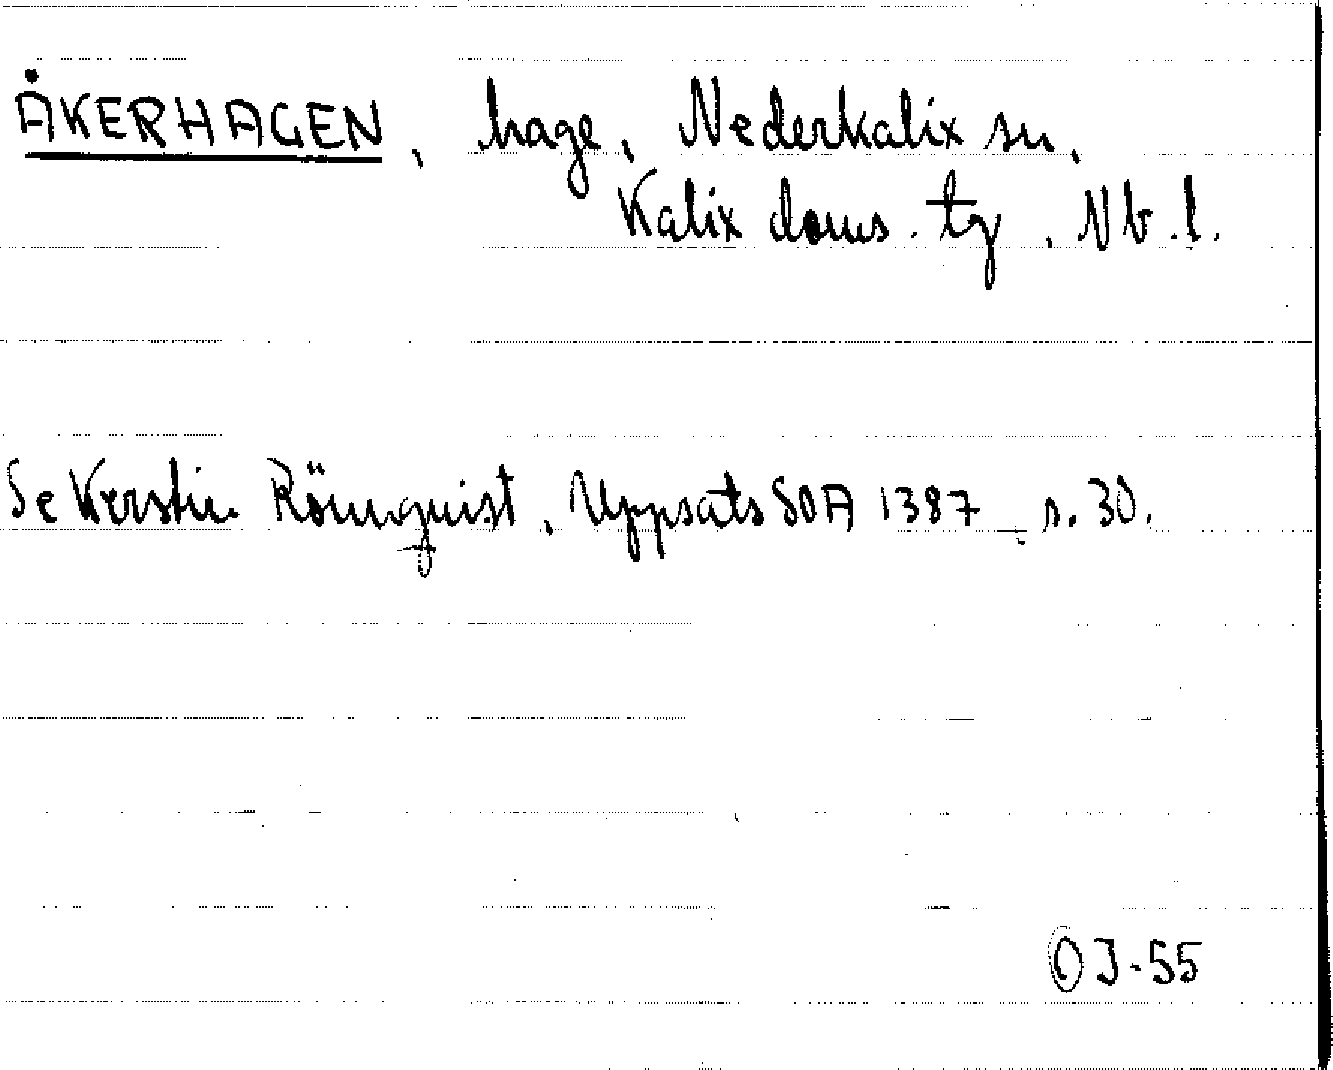 ÅKERHAGEN, hage, Nederkalix sn,
Kalix doms. tg, Nb. l.
Se Kerstin Römquist, Uppsats SOA 1387 s. 30.
OJ-55